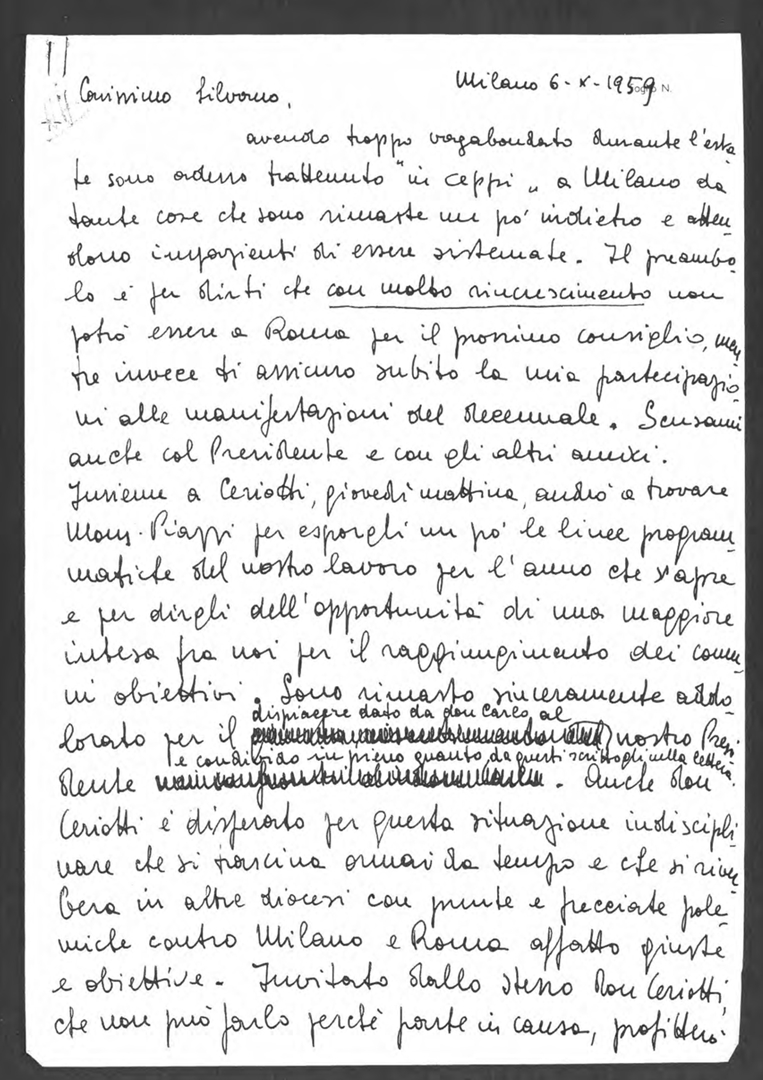 Milano 6-X-1959
Carissimo Silvano,
avendo troppo vagabondato durante l'esta
te sono adesso trattenuto "in ceppi" a Milano da
tante cose che sono rimaste un po' indietro e atten
dono impazienti di essere sistemate. Il preambo
lo è per dirti che con molto rincrescimento non
potrò essere a Roma per il prossimo consiglio, men
tre invece ti assicuro subito la mia partecipazio
ni alle manifestazioni del decennale. Scusami
anche col Presidente e con gli altri amici.
Insieme a Ceriotti, giovedì mattina, andrò a trovare
Mons. Piazzi per esporgli un po' le linee program
matiche del nostro lavoro per l'anno che s'apre
e per dirgli dell'opportunità di una maggiore
intesa fra noi per il raggiungimento dei comu
ni obiettivi. Sono rimasto sinceramente addo
dispiacere dato da don Carlo al
lorato per il nostro Presi
e condivido in pieno quanto da questi scrittogli nella lettera.
dente . Anche don
Ceriotti è disperato per questa situazione indiscipli
nare che si trascina ormai da tempo e che si river
bera in altre diocesi con punte e frecciate pole
miche contro Milano e Roma affatto giuste
e obiettive. Invitato dallo stesso don Ceriotti,
che non può farlo perchè parte in causa, profitterò